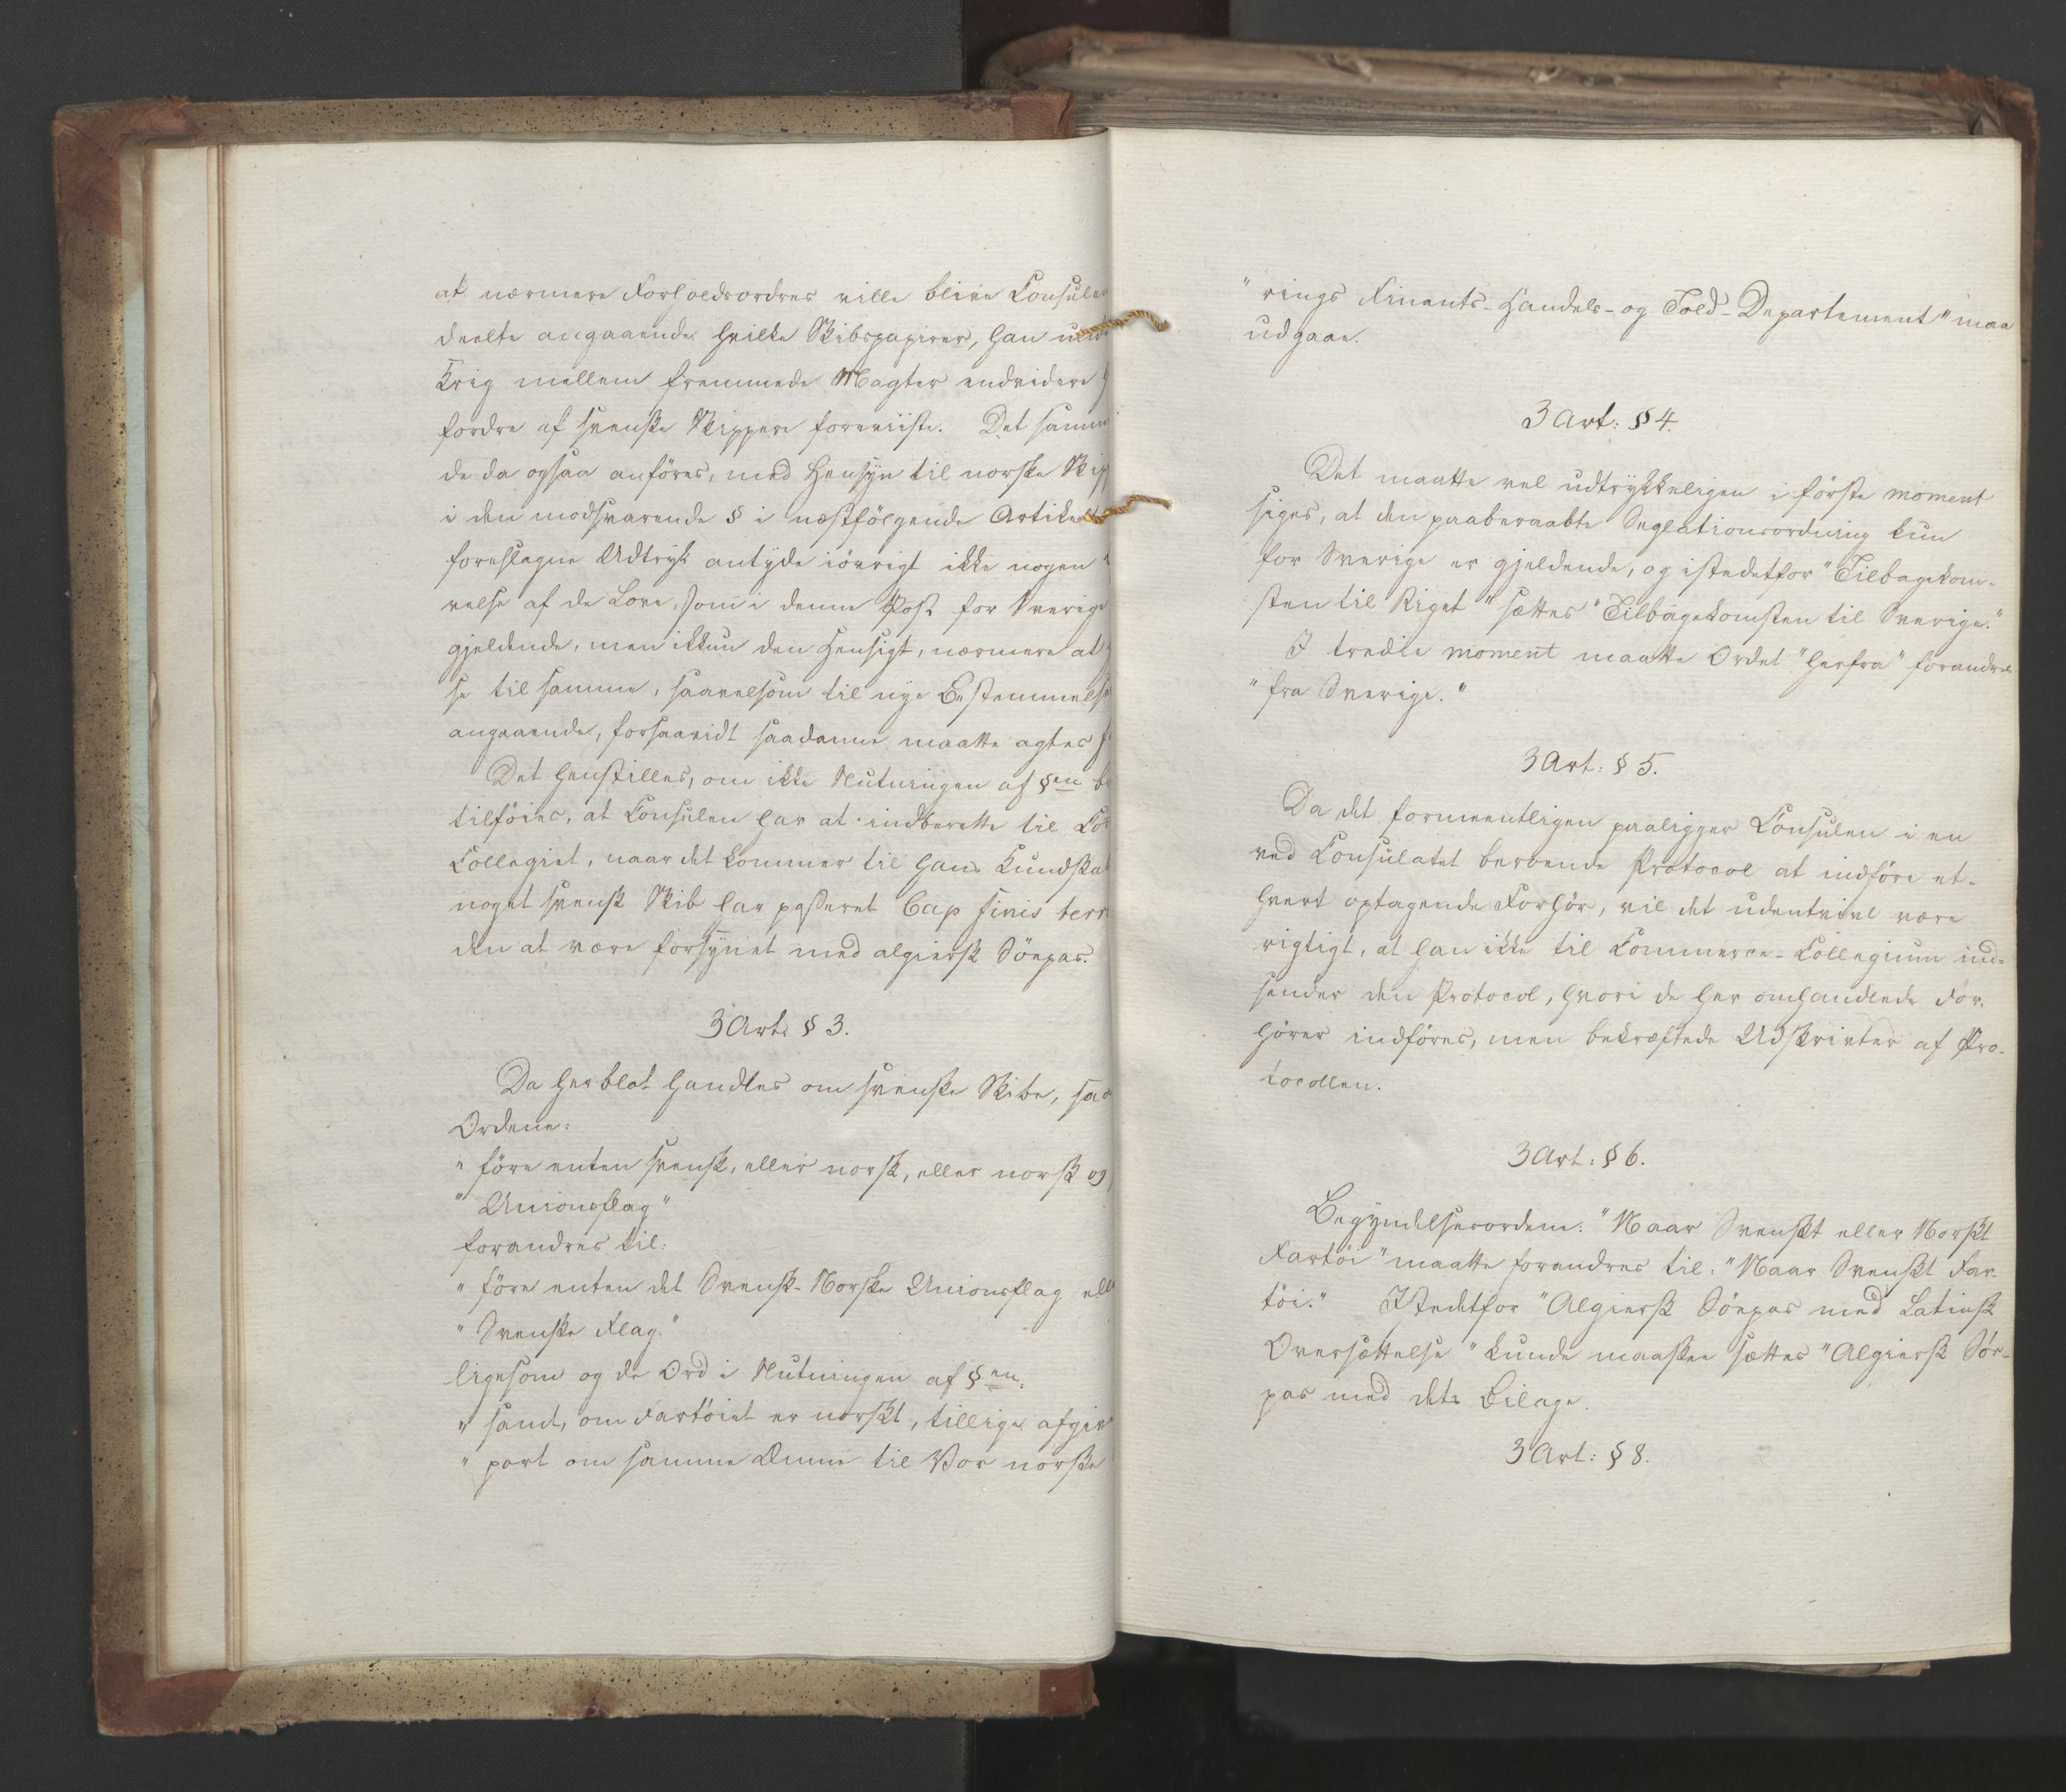 at nærmere Forholdsordres ville blive Consulen
deelte angaaende hvilke Skibspapirer, han under
Krig mellem fremmede Magter endvidere
fordre af svenske Skippere foreviiste. Det samme
de da ogsaa anføres, med Hensyn til norske Skip
i den modsvarende § i næstfølgende Artikel
foreslagne Udtryk antyde iøvrigt ikke nogen
velse af de Love, som i denne Post for Sverige
gjeldende, men ikkun den Hensigt, nærmere at
se til samme, saavelsom til nye Bestemmelse
angaaende, forsaavidt saadanne maatte agtes
Det henstilles, om ikke Slutningen af §en
tilføies, at Consulen har at indberette til Com
Collegiet, naar det kommer til hans Kundskab
noget svensk Skib har passeret Cap finis terr
den at være forsynet med algiersk Söepas.
3 Art: § 3.
Da her blot handles om svenske Skibe, saa
Ordene:
" före enten svensk, eller norsk, eller norsk og
" Unionsflag"
forandres til:
" före enten det Svensk-Norske Unionsflag elle
" Svenske Flag."
ligesom og de Ord i Slutningen af §en:
" samt, om Fartöiet er norskt, tillige afgive
" port om samme Emne til Vor norske
" rings Finants-Handels-og Told-Departement" maa
udgaae.
3 Art: § 4.
Det maatte vel udtrykkeligen i første moment
siges, at den paaberaabte Seglationsordning kun
for Sverige er gjeldende, og istedetfor "Tilbagekom-
sten til Riget" sættes "Tilbagekomsten til Sverige."
I tredie moment maatte Ordet "herfra" forandres
" fra Sverige."
3 Art: § 5.
Da det formeentligen paaligger Consulen i en
ved Consulatet beroende Protocol at indføre et-
hvert optagende Forhör, vil det udentvivl være
rigtigt, at han ikke til Commerce-Collegium ind-
sender den Protocol, hvori de her omhandlede For-
hörer indföres, men bekræftede Udskrivter af Pro-
tocollen.
3 Art: § 6.
Begyndelsesordene: "Naar Svenskt eller Norskt
Fartöi" maatte forandres til: "Naar Svenskt Far-
töi." Istedetfor "Algiersk Söepas med Latinsk
Oversættelse" kunde maaskee sættes "Algiersk Söe-
pas med dets Bilage.
3 Art: § 8.